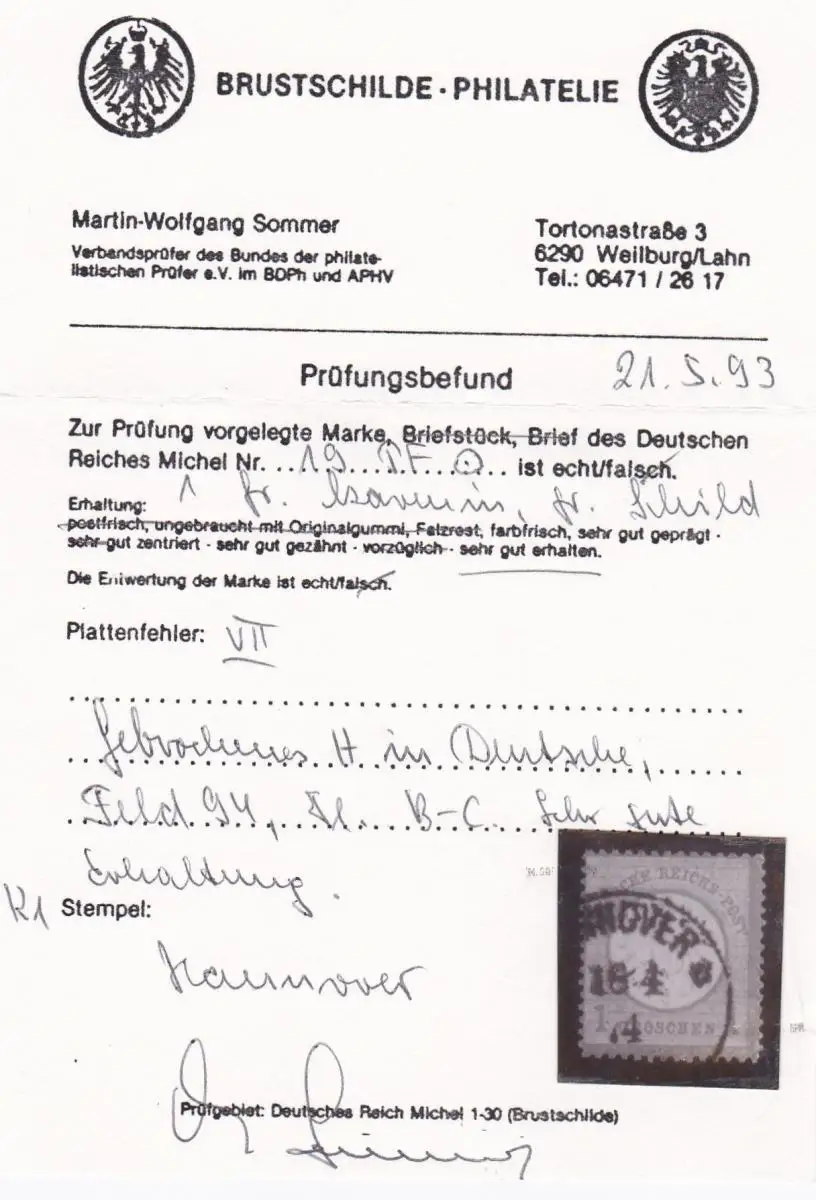 BRUSTSCHILDE · PHILATELIE
Martin-Wolfgang Sommer
Verbandsprüfer des Bundes der philate-
listischen Prüfer e.V. im BDPh und APHV
Tortonastraße 3
6290 Weilburg/Lahn
Tel.: 06471 / 26 17
Prüfungsbefund 21.5.93
Zur Prüfung vorgelegte Marke, Briefstück, Brief des Deutschen
Reiches Michel Nr. 19 PF ist echt/falsch.
1 gr. gr. Schild
Erhaltung:
postfrisch, ungebraucht mit Originalgummi, Falzrest, farbfrisch, sehr gut geprägt -
sehr gut zentriert - sehr gut gezähnt - vorzüglich - sehr gut erhalten.
Die Entwertung der Marke ist echt/falsch.
Plattenfehler: VII
Gebrochenes H in Deutsche,
Feld 94, B-C. Sehr gute
Erhaltung.
K1 Stempel:
Hannover
CHE REICHS-POST
NNOVER
18 4
1 GROSCHEN
Prüfgebiet: Deutsches Reich Michel 1-30 (Brustschilde)